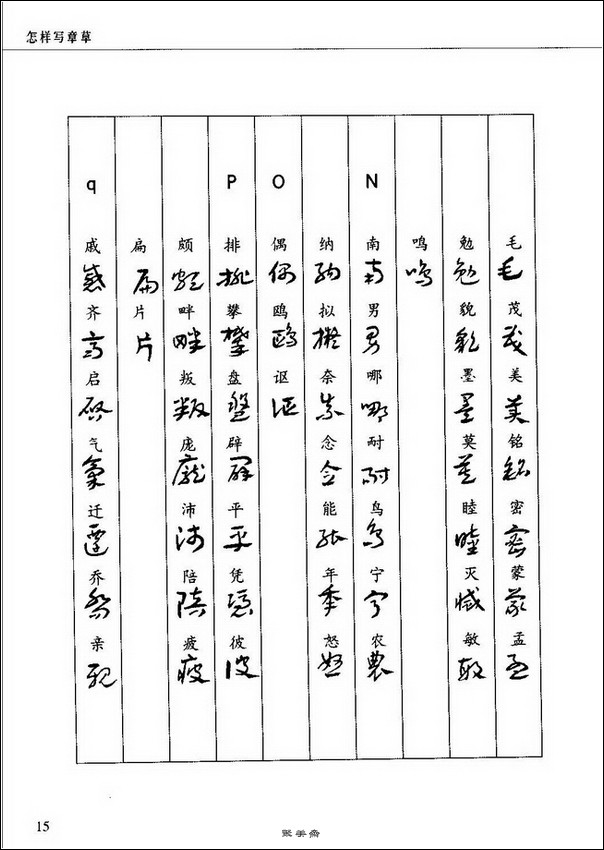 怎样写章草
毛 茂 美 铭 密 蒙 孟
勉 貌 墨 莫 睦 灭 敏
鸣
N 南 男 哪 耐 鸟 宁 农
纳 拟 奈 念 能 年 怒
O 偶 鸥 讴
P 排 攀 盘 辟 平 凭 彼
颇 畔 叛 庞 沛 陪 疲
扁 片
q 戚 齐 启 气 迁 乔 亲
15
聚美斋